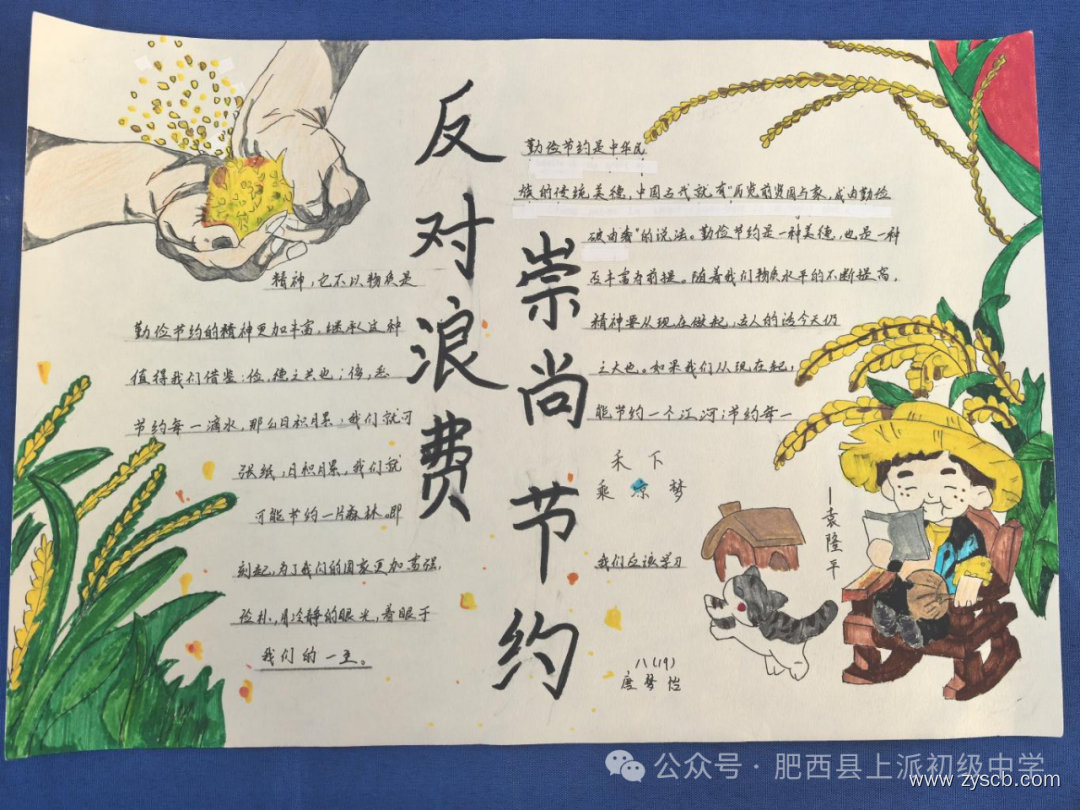 反对浪费
崇尚节约
勤俭节约是中华民
族的传统美德,中国古代就有"历览前贤国与家,成由勤俭
破由奢"的说法。勤俭节约是一种美德,也是一种
精神,它不以物质是
否丰富为前提。随着我们物质水平的不断提高,
勤俭节约的精神更加丰富,继承这种
精神要从现在做起,古人的话今天仍
值得我们借鉴:俭,德之共也;侈,恶
之大也。如果我们从现在起,
节约每一滴水,那么日积月累,我们就可
能节约一个江河;节约每一
张纸,日积月累,我们就
可能节约一片森林。即
刻起,为了我们的国家更加富强,
我们应该学习
俭朴,用冷静的眼光,着眼于
我们的一生。
禾下
乘凉梦
—袁隆平
八(19)
唐梦怡
公众号·肥西县上派初级中学
www.zyscb.com